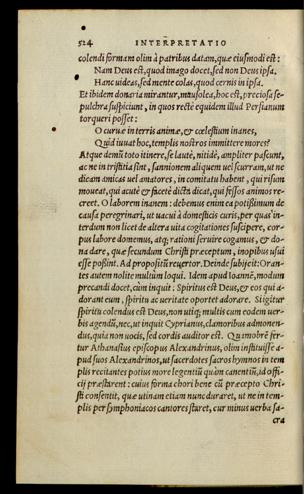 524 INTERPRETATIO
colendi formam olim à patribus datam, quæ eiusmodi est:
Nam Deus est, quod imago docet, sed non Deus ipsa.
Hanc uideas, sed mente colas, quod cernis in ipsa.
Et ibidem donaria mirantur, mausolea, hoc est, preciosa se-
pulchra suspiciunt, in quos rectè equidem illud Persianum
torqueri posset:
O curuæ in terris animæ, & cœlestium inanes,
Quid iuuat hoc, templis nostros immittere mores?
Atque demũ toto itinere, se lautè, nitidè, ampliter pascunt,
ac ne in tristitia sint, sannionem aliquem uel scurram, ut ne
dicam amicas uel amatores, in comitatu habent, qui risum
moueat, qui acutè & facetè dicta dicat, qui fessos animos re-
creet. O laborem inanem: debemus enim ea potißimum de
causa peregrinari, ut uacui à domesticis curis, per quas in-
terdum non licet de altera uita cogitationes suscipere, cor-
pus labore domemus, atq; rationi seruire cogamus, & do-
na dare, quæ secundum Christi præceptum, inopibus usui
esse poßint. Ad propositũ reuertor. Deinde subijcit: Oran-
tes autem nolite multùm loqui. Idem apud Ioannẽ, modum
precandi docet, cùm inquit: Spiritus est Deus, & eos qui a-
dorant eum, spiritu ac ueritate oportet adorare. Si igitur
spiritu colendus est Deus, non utiq; multis cum eodem uer-
bis agendũ, nec, ut inquit Cyprianus, clamoribus admonen-
dus, quia non uocis, sed cordis auditor est. Quamobrẽ fer-
tur Athanasius episcopus Alexandrinus, olim instituisse a-
pud suos Alexandrinos, ut sacerdotes sacros hymnos in tem
plis recitantes potius more legentiũ quàm canentiũ, id offi-
cij præstarent: cuius forma chori bene cũ præcepto Chri-
sti consentit, quæ utinam etiam nunc duraret, ut ne in tem-
plis per symphoniacos cantores staret, cur minus uerba sa-
cra